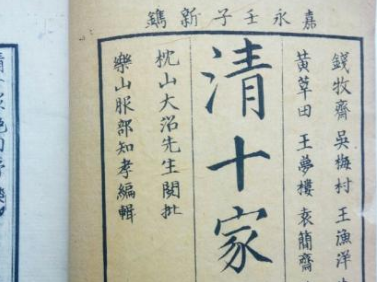 嘉永壬子新鐫
錢牧齋 吳梅村 王漁洋
黄草田 王夢樓 袁簡齋
清十家
枕山大沼先生閱批
樂山服部知孝編輯